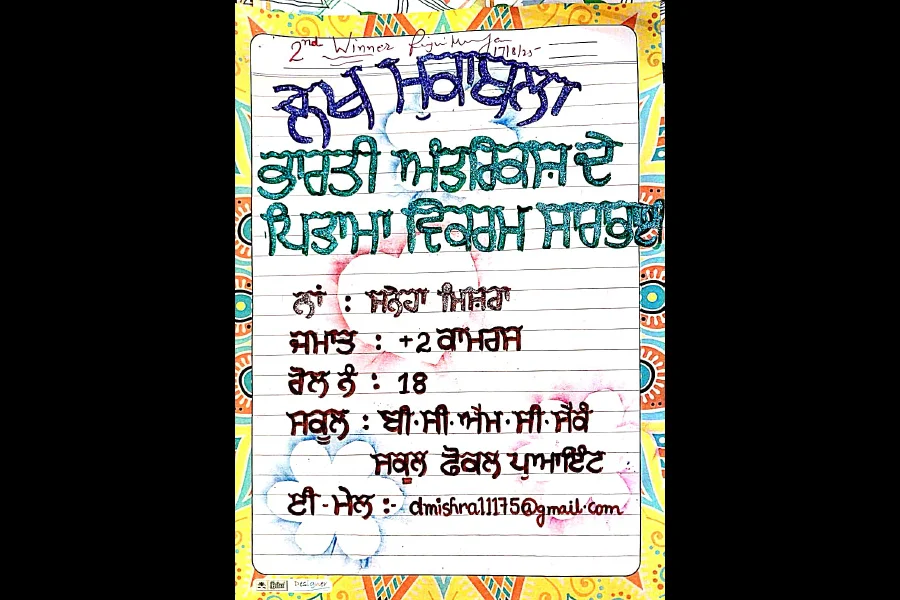 2nd Winner 17/8/25
ਲੇਖ ਮੁਕਾਬਲਾ
ਭਾਰਤੀ ਅੰਤਰਿਕਸ਼ ਦੇ
ਪਿਤਾਮਾ ਵਿਕਰਮ ਸਾਰਾਭਾਈ
ਨਾਂ : ਸਨੇਹਾ ਮਿਸ਼ਰਾ
ਜਮਾਤ : +2 ਕਾਮਰਸ
ਰੋਲ ਨੰ : 18
ਸਕੂਲ : ਬੀ·ਸੀ·ਐਮ·ਸੀ·ਸੈਕੰ
ਸਕੂਲ ਫੋਕਲ ਪੁਆਇੰਟ
ਈ-ਮੇਲ :- dmishra11175@gmail.com
Designer